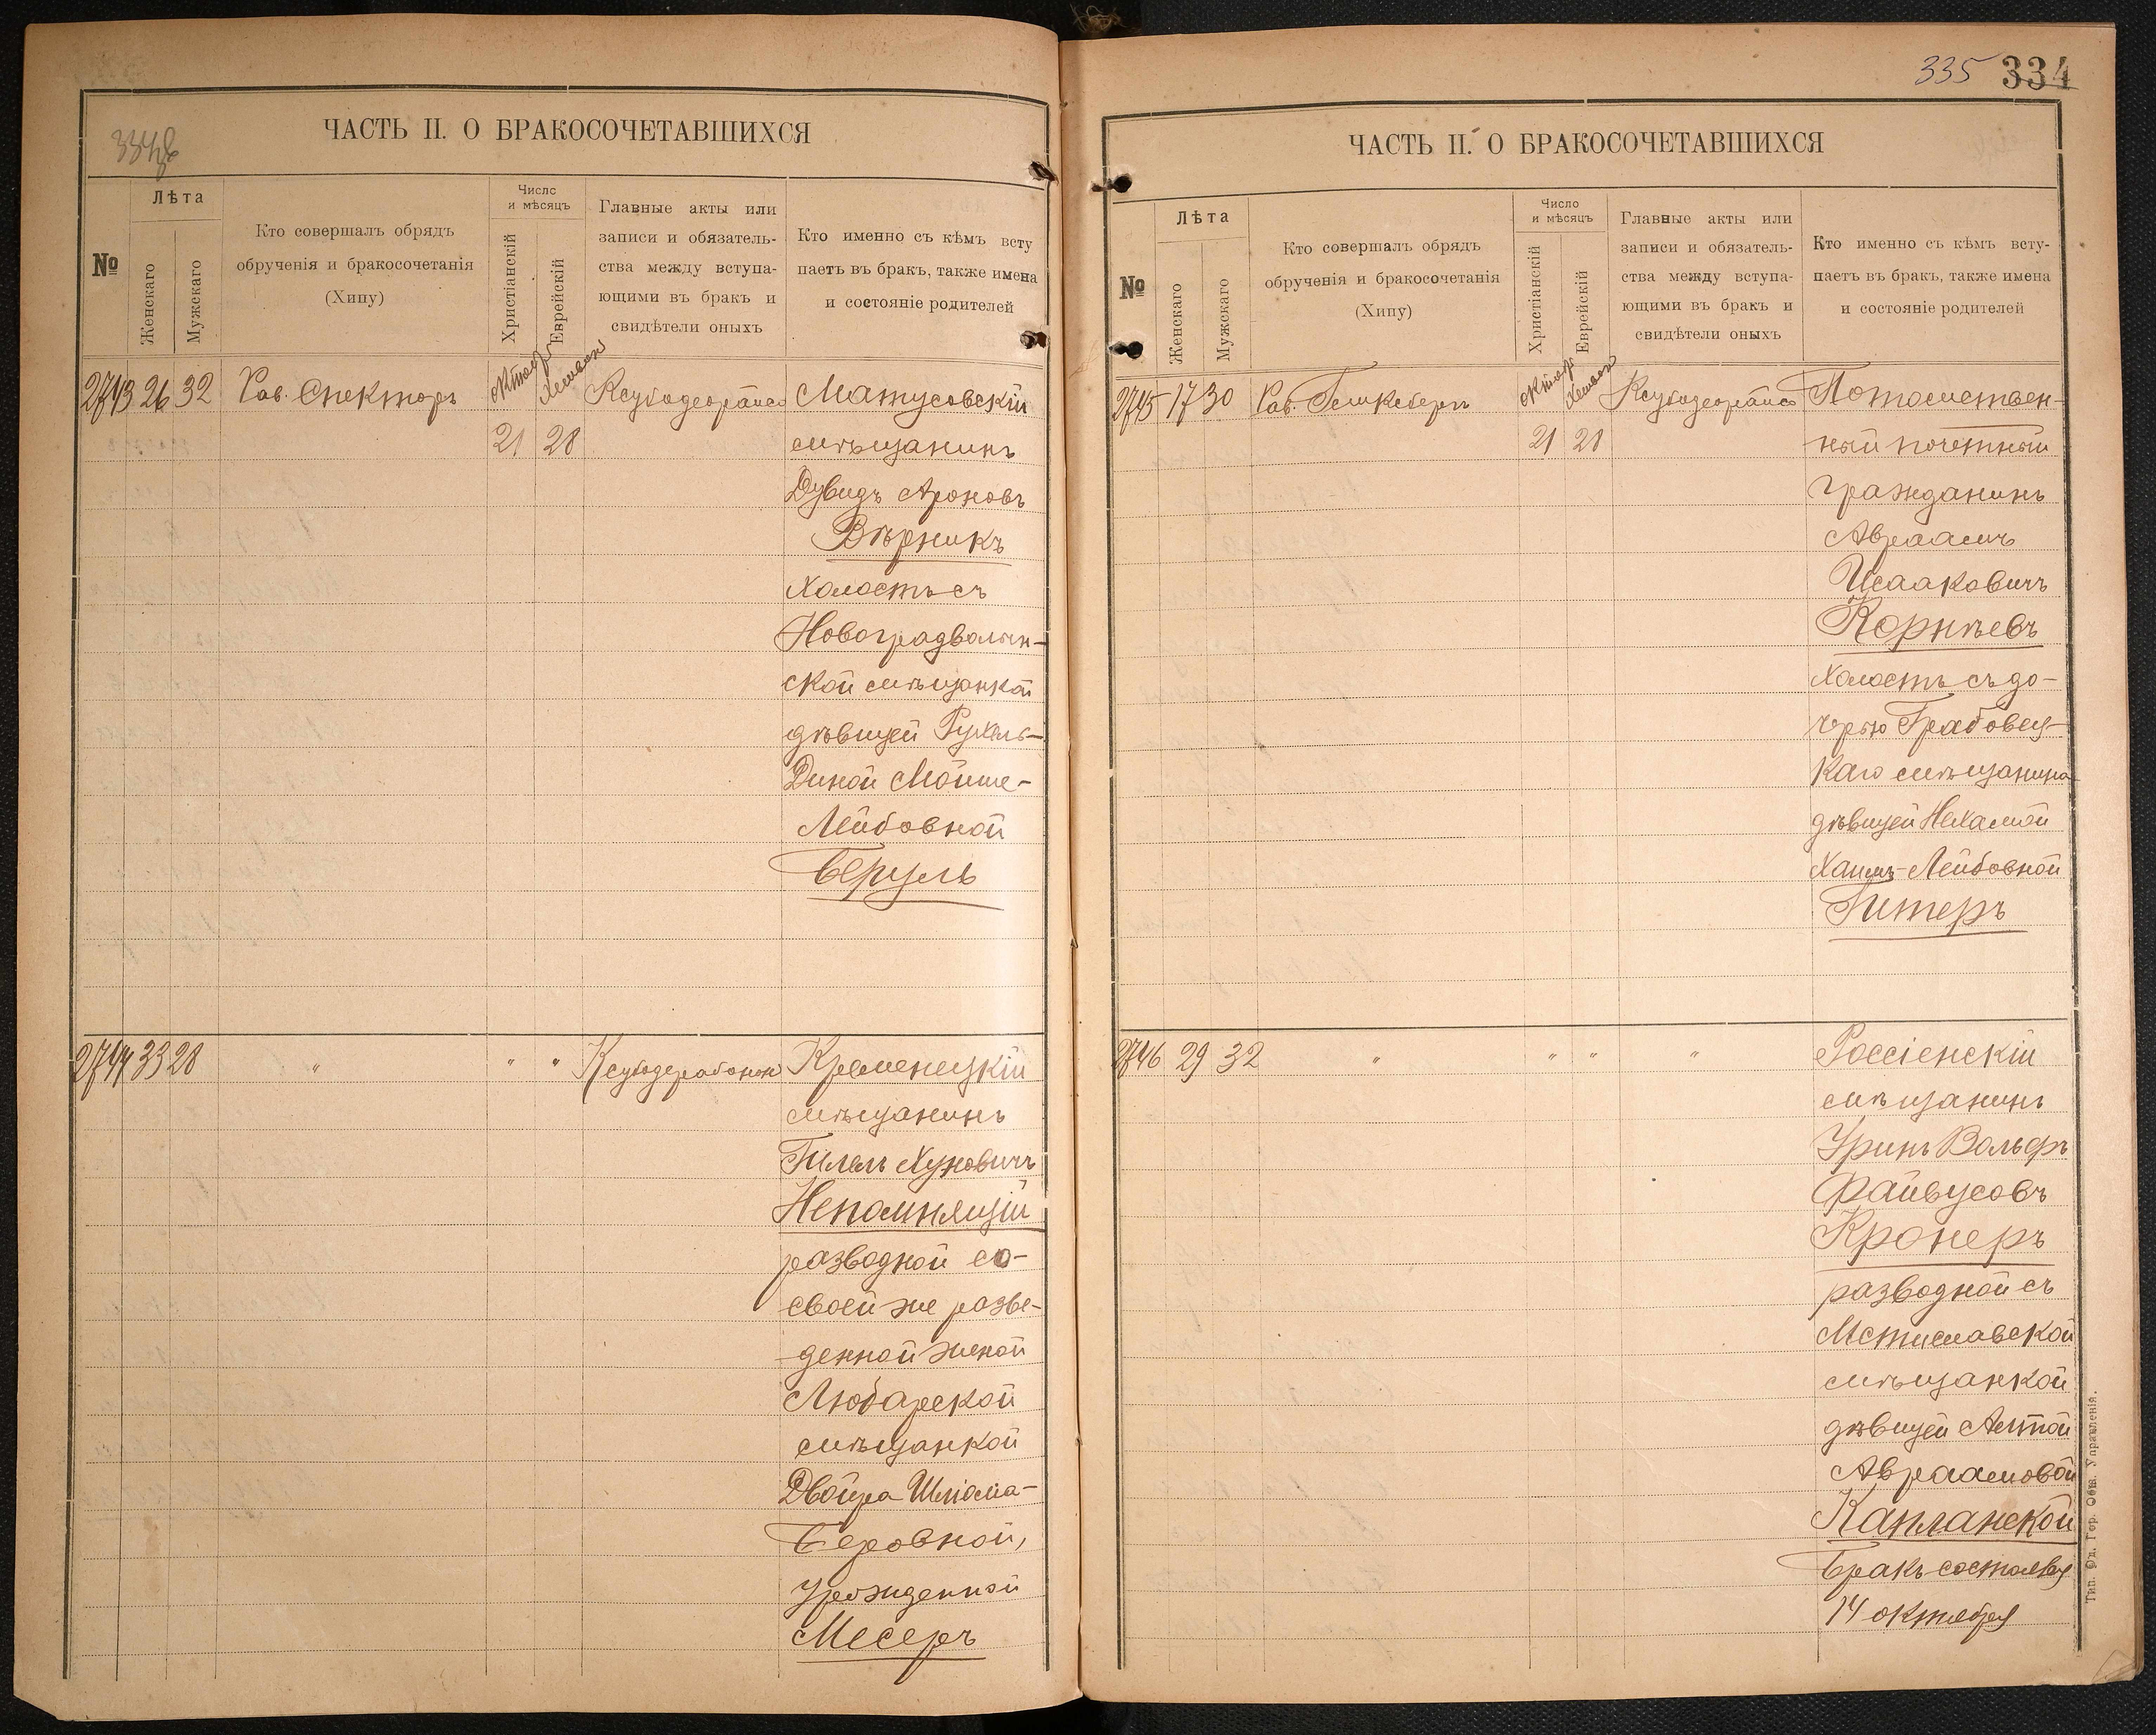 334 об
ЧАСТЬ II. О БРАКОСОЧЕТАВШИХСЯ
№
Лѣта
Женскаго
Мужскаго
Кто совершалъ обрядъ
обрученія и бракосочетанія
(Хипу)
Число
и мѣсяцъ
Христіанскій
Еврейскій
Главные акты или
записи и обязатель-
ства между вступа-
ющими въ бракъ и
свидѣтели оныхъ
Кто именно съ кѣмъ всту
паетъ въ бракъ, также имена
и состояніе родителей
2743 26 32 Рав. Спекторъ
Октяб Хешван
21 28
Матусовскій
мѣщанинъ
Дувидъ Ароновъ
Вѣрникъ
Холостъ съ
Новоградволын-
ской мѣщанкой
дѣвицей Рухель-
Диной Мойше-
Лейбовной
Беруль
2744 33 28 " " "
Кременецкій
мѣщанинъ
Гилель Хуновичъ
Непомнящій
разводной со
своей же разве-
денной женой
Любарской
мѣщанкой
Двойра Шліома-
Беровной,
Урожденной
Месеръ
335 334
ЧАСТЬ II. О БРАКОСОЧЕТАВШИХСЯ
№
Лѣта
Женскаго
Мужскаго
Кто совершалъ обрядъ
обрученія и бракосочетанія
(Хипу)
Число
и мѣсяцъ
Христіанскій
Еврейскій
Главные акты или
записи и обязатель-
ства между вступа-
ющими въ бракъ и
свидѣтели оныхъ
Кто именно съ кѣмъ всту-
паетъ въ бракъ, также имена
и состояніе родителей
2745 17 30 Рав.
Октяб Хешван
21 28
Потомствен-
ный почетный
гражданинъ
Авраамъ
Исааковичъ
Корнѣевъ
Холостъ съ до-
черью Грабовец-
каго мѣщанина
дѣвицей Нехамой
Хаимъ-Лейбовной
Гитеръ
2746 29 32 " " " "
Россіенскій
мѣщанинъ
Уринъ Вольфъ
Файвусовъ
Кронеръ
разводной съ
Мстиславской
мѣщанкой
дѣвицей
Авраамовой
Капланской
Бракъ состоялся
14 октября
Тип. Од. Гор. Общ. Управленія.